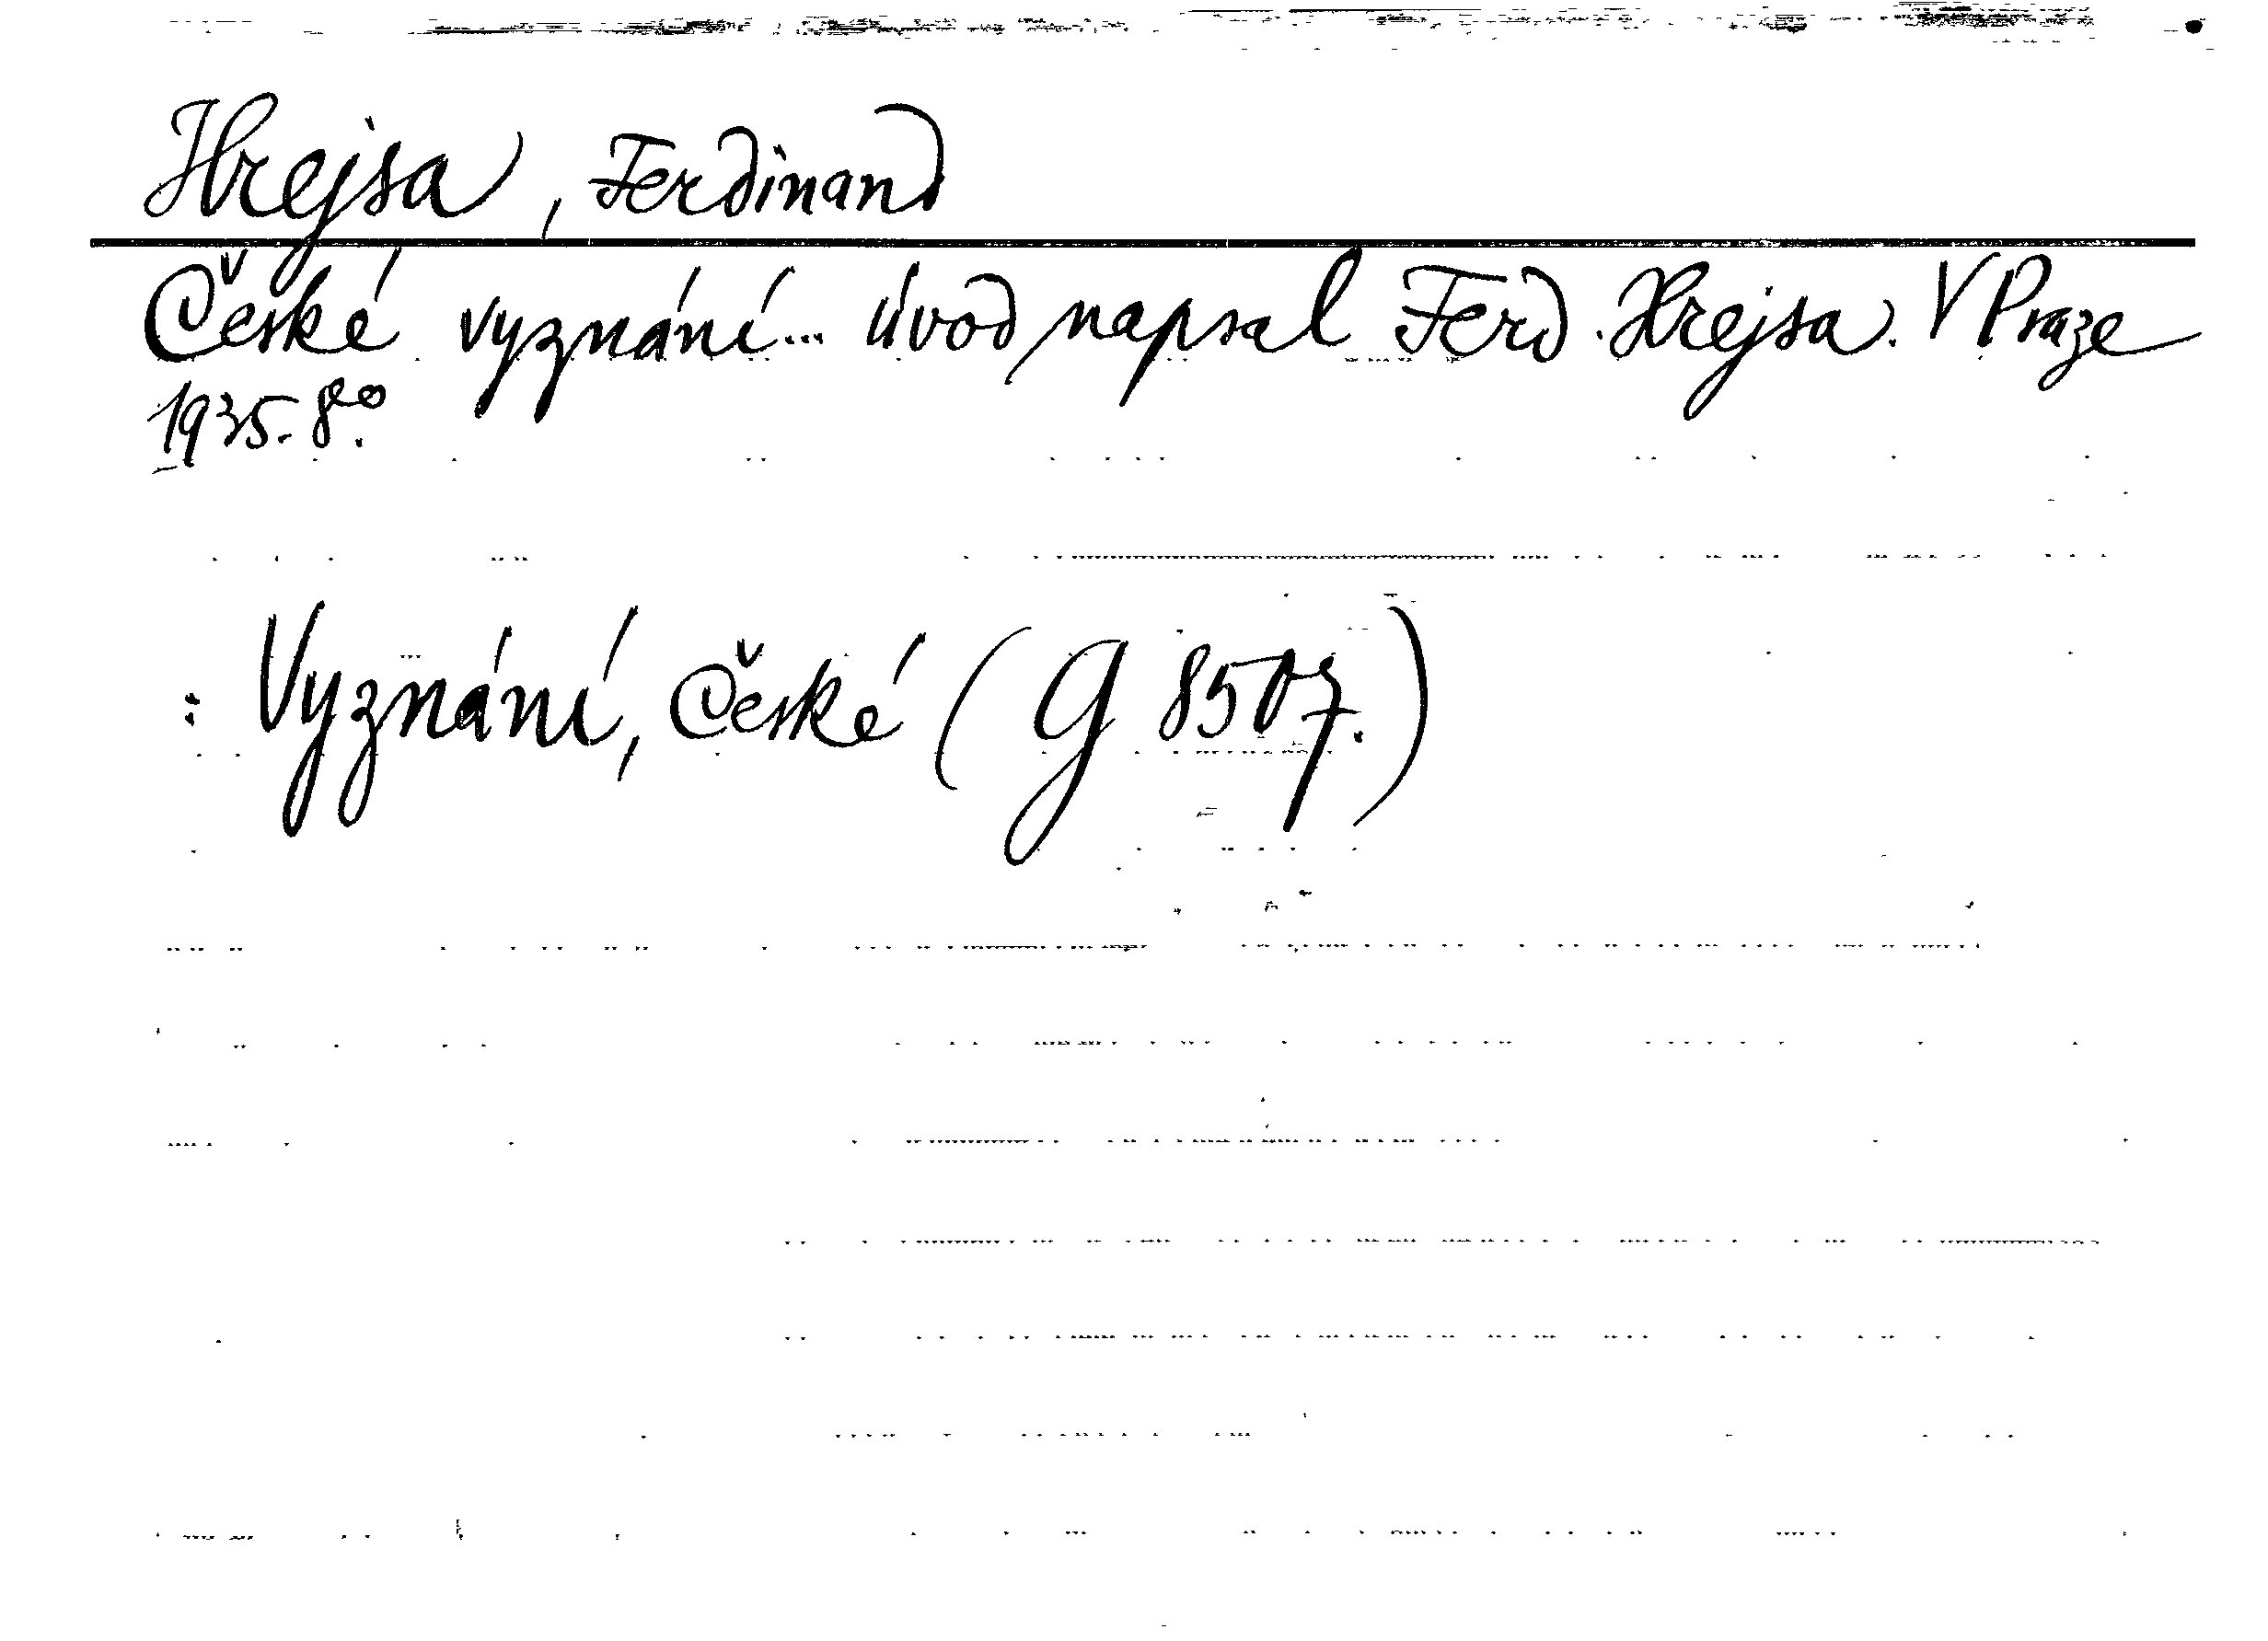 Hrejsa, Ferdinand
České vyznání... úvod napsal Ferd. Hrejsa. V Praze
1935. 8º.
: Vyznání, České (G 8507.)